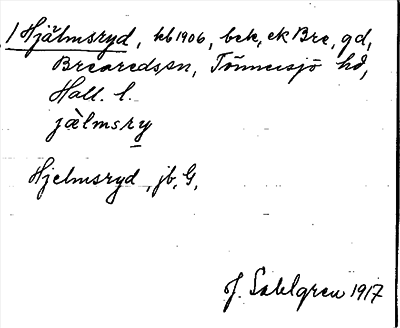 1 Hjälmsryd, kb 1906, bek, ek Bre, gd,
Brearedssn, Tönnersjö hd,
Hall. l.
jàlmsry
Hjelmsryd, jb, G,
J. Sahlgren 1917